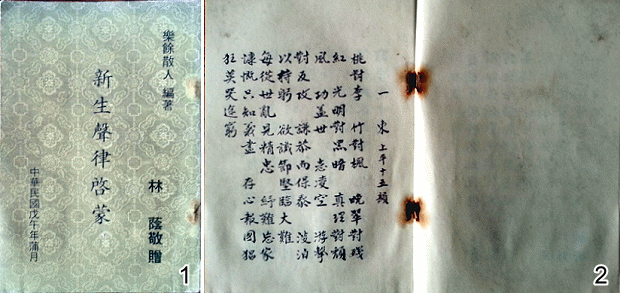 樂餘散人 編著
林 蔭敬贈
新生聲律啓蒙
中華民國戊午年蒲月
1
一 東 上平十五韻
桃對李 竹對楓 晚翠對殘
紅 光明對黑暗 真理對頑
風 功蓋世 志凌空 游擊
對反攻 謙恭而保泰 淡泊
以持躬 欲識節堅臨大難
每從世亂見精忠 紓難忘家
慷慨只知義盡 存心報國猖
狂莫哭途窮
2